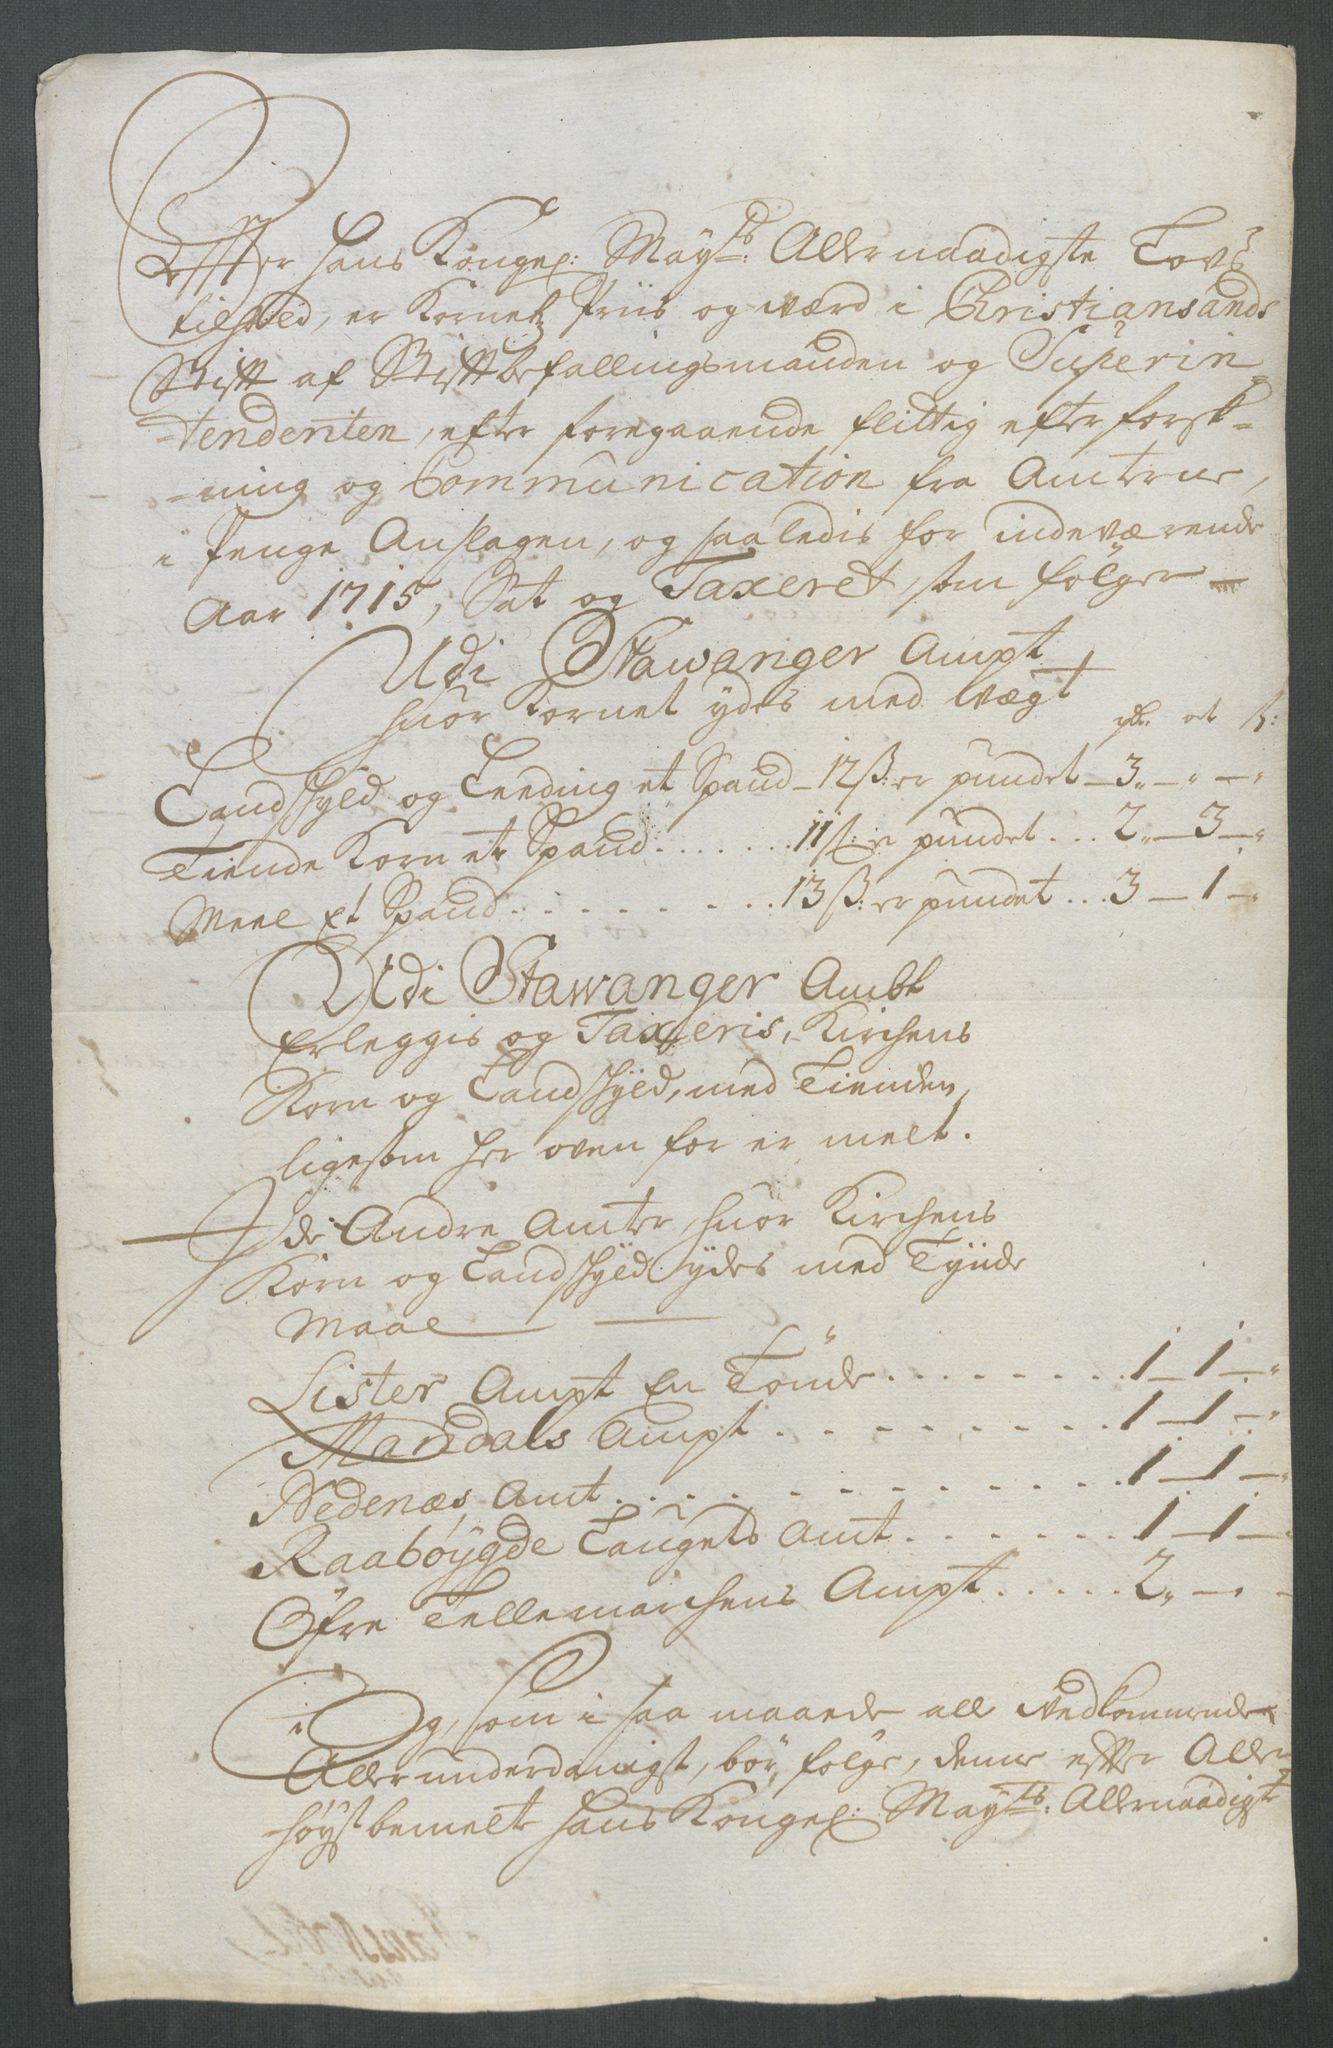 Effter Hans Kongel: May:ts Allernaadigste Lovs
tilhold, er Kornetz Priis og værd i Christiansands
Stift af Stiftbefallingsmanden og Superin
-tendenten, efter foregaaende flittig efterforsk-
-ning og Communication fra Amterne,
i Penge Anslagen, og saaledis for indeværende
Aar 1715, Sat og Taxeret, som følger
Udi Stawanger Ampt
huor Kornet ydes med Vægt
rdr. ort ß:
Landschyld og Leeding et Spand - 12 ß: er pundet - 3„ - „ - „
Tiende Korn et Spand . . . . . . 11 ß: er pundet . . . 2„ - 3 - „
Meel et Spand . . . . . . . . . 13 ß: er pundet . . . 3 - 1 - „
Udi Stawanger Ambt
Erleggis og Taxeris, Kirchens
Korn og Landschyld, med Tienden,
ligesom her oven for er melt.
I de Andre Amter, huor Kirchens
Korn og Landschyld ydes med Tynde
Maal
Lister Ampt En Tønde . . . . . . . . 1 - 1 - „
Mandals Ampt . . . . . . . . . 1 - 1 - „
Nedenæs Amt . . . . . . . . . . . . . 1 - 1 - „
Raabøygde Laugets Amt . . . . . . . 1 - 1 -
Øfre Tellemarchens Ampt . . . . . 2„ - „ -
Og, som i saa maade all Vedkommende
Allerunderdanigst, bør følge, denne effter Aller-
høystbemelte Hans Kongel: May:ts Allernaadigst